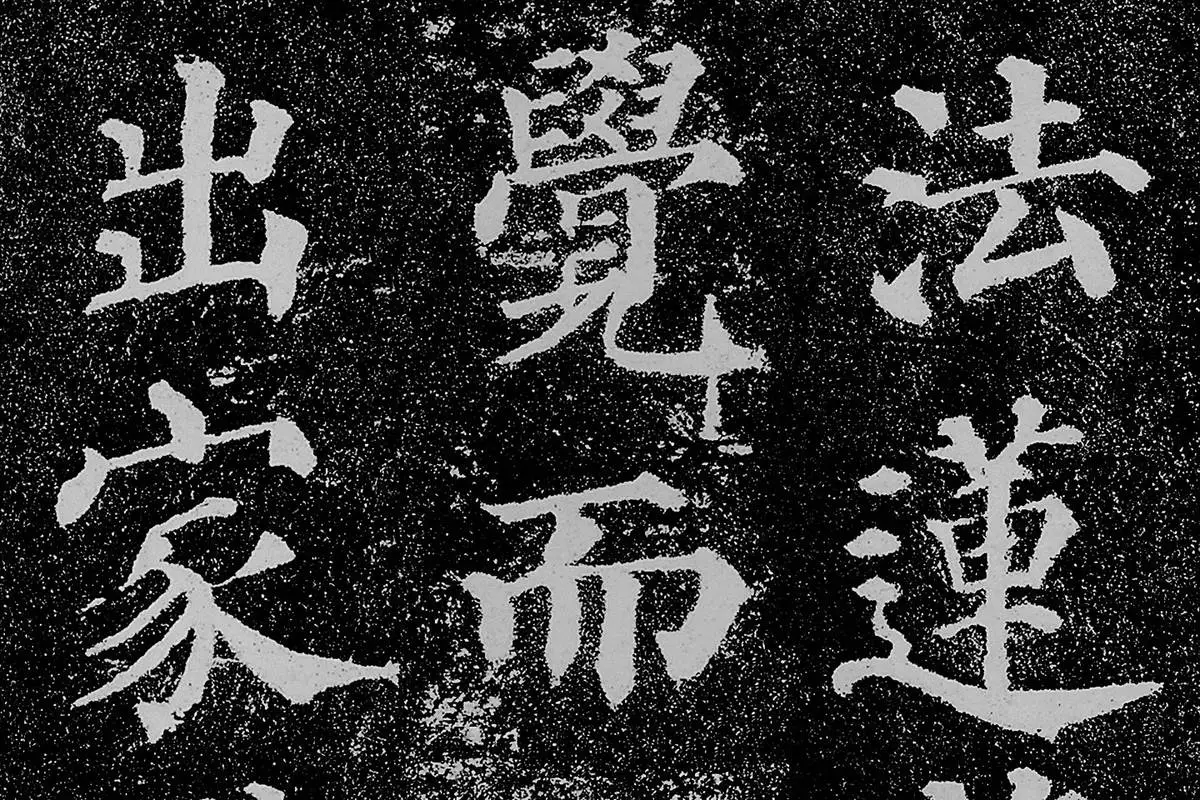 法蓮
覺而
出家